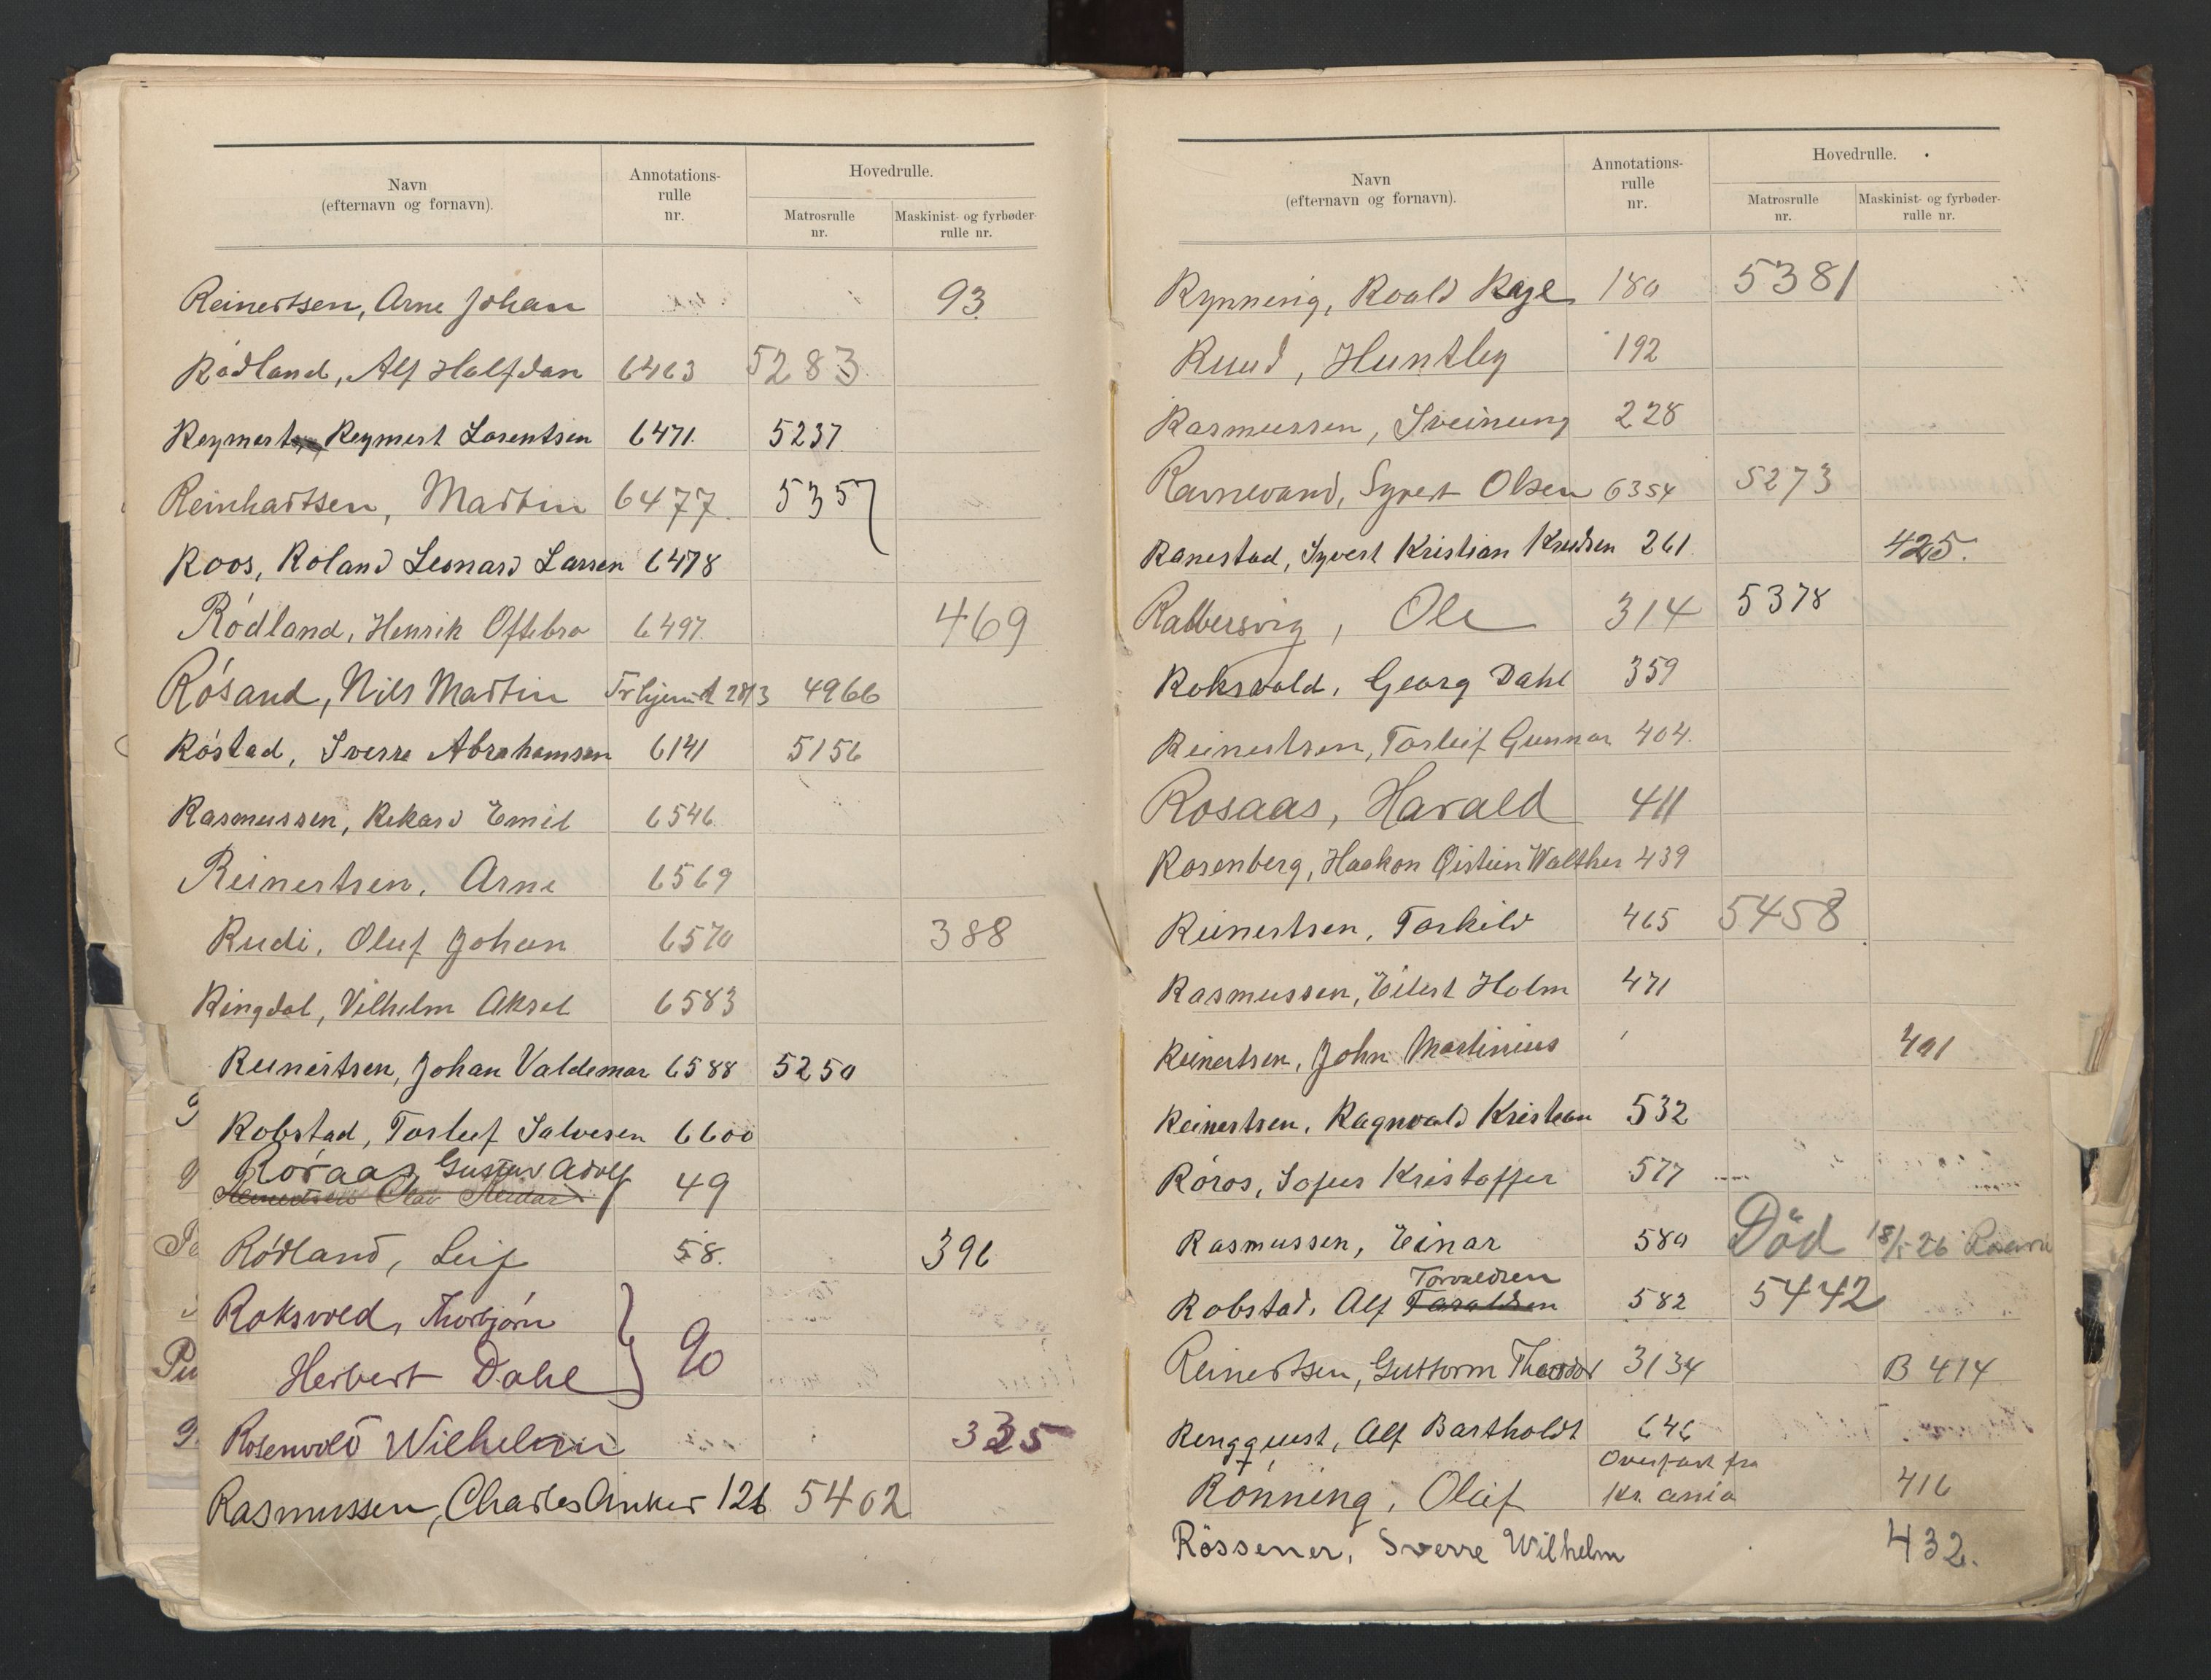 Navn
(efternavn og fornavn).
Annotations-
rulle
nr.
Hovedrulle.
Matrosrulle
nr.
Maskinist- og fyrbøder-
rulle nr.
Reinertsen, Arne Johan 93
Rödland, Alf Halfdan 6463 5283
Reymert Lorentsen 6471 5237
Reinhartsen, Martin 6477 5357
Roos, Roland Leonard Larsen 6478
Rödland, Henrik Oftebro 6497 469
Rösand, Nils Martin 4966
Röstad, Sverre Abrahamsen 6141 5156
Rasmussen, Rikard Emil 6546
Reinertsen, Arne 6569
Rudi, Oluf Johan 6570 388
Ringdal, Vilhelm Aksel 6583
Reinertsen, Johan Valdemar 6588 5250
Robstad, Torleif Salvesen 6600
Röraas Gustav Adolf 49
Rödland, Leif 58. 396
Roksvold, Thorbjørn
Herbert Dahl 90
Rosenvold Wilhelm 335
Rasmussen, Charles Anker 126 5402
Navn
(efternavn og fornavn).
Annotations-
rulle
nr.
Hovedrulle.
Matrosrulle
nr.
Maskinist- og fyrbøder-
rulle nr.
Rynning, Roald Rye 180 5381
Ruud, Huntley 192
Rasmussen, Sveinung 228
Ravnevand, Syvert Olsen 6354 5273
Ranestad, Syvert Kristian Knudsen 261 425.
Ole 314 5378
Roksvold, Georg Dahl 359
Reinertsen, Torleif Gunnar 404.
Rosaas, Harald 411
Rosenberg, Haakon Øistein Walther 439
Reinertsen, Torkild 465 5458
Rasmussen, Eilert Holm 471
Reinertsen, John Martinius 401
Reinertsen, Ragnvald Kristian 532
Röros, Sofus Kristoffer 577
Rasmussen, Einar 580 Död 18/5 26
Torvaldsen
Robstad, Alf Taraldsen 582 5442
Reinertsen, Guttorm Theodor 3134 B 414
Rengquist, Alf Bartholdt 646
Overført fra
Rönning, Olaf Kr. ania 416
Rössener, Sverre Wilhelm 432.